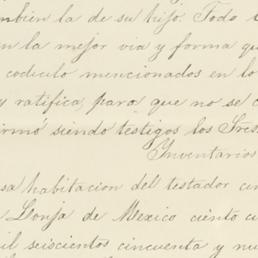 mbien la de su hijo. Todo
en la mejor via y forma qu
codicilo mencionados en lo
y ratifica, para que no se
irmó siendo testigos los Sres
Inventarios
sa habitacion del testador
Lonja de Mexico ciento
il seiscientos cincuenta y nu